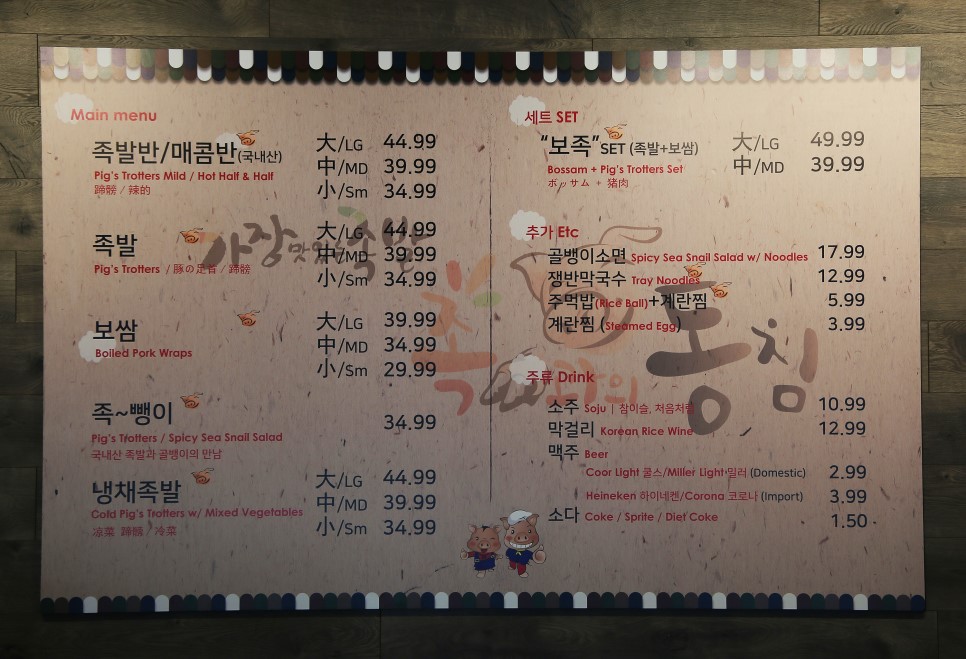 Main menu
족발반/매콤반(국내산)
Pig's Trotters Mild / Hot Half & Half
蹄膀 / 辣的
大/LG 44.99
中/MD 39.99
小/Sm 34.99
가장 맛있는 족발
족발
Pig's Trotters / 豚の足首 / 蹄膀
大/LG 44.99
中/MD 39.99
小/Sm 34.99
보쌈
Boiled Pork Wraps
大/LG 39.99
中/MD 34.99
小/Sm 29.99
족~뺑이
Pig's Trotters / Spicy Sea Snail Salad
국내산 족발과 골뱅이의 만남
34.99
냉채족발
Cold Pig's Trotters w/ Mixed Vegetables
凉菜 蹄膀 / 冷菜
大/LG 44.99
中/MD 39.99
小/Sm 34.99
세트 SET
"보족"SET (족발+보쌈)
Bossam + Pig's Trotters Set
ボッサム + 猪肉
大/LG 49.99
中/MD 39.99
추가 Etc
골뱅이소면 Spicy Sea Snail Salad w/ Noodles 17.99
쟁반막국수 Tray Noodles 12.99
주먹밥(Rice Ball)+계란찜 5.99
계란찜 (Steamed Egg) 3.99
족과의 동침
주류 Drink
소주 Soju | 참이슬, 처음처럼 10.99
막걸리 Korean Rice Wine 12.99
맥주 Beer
Coor Light 쿨스/Miller Light 밀러 (Domestic) 2.99
Heineken 하이네켄/Corona 코로나 (Import) 3.99
소다 Coke / Sprite / Diet Coke 1.50